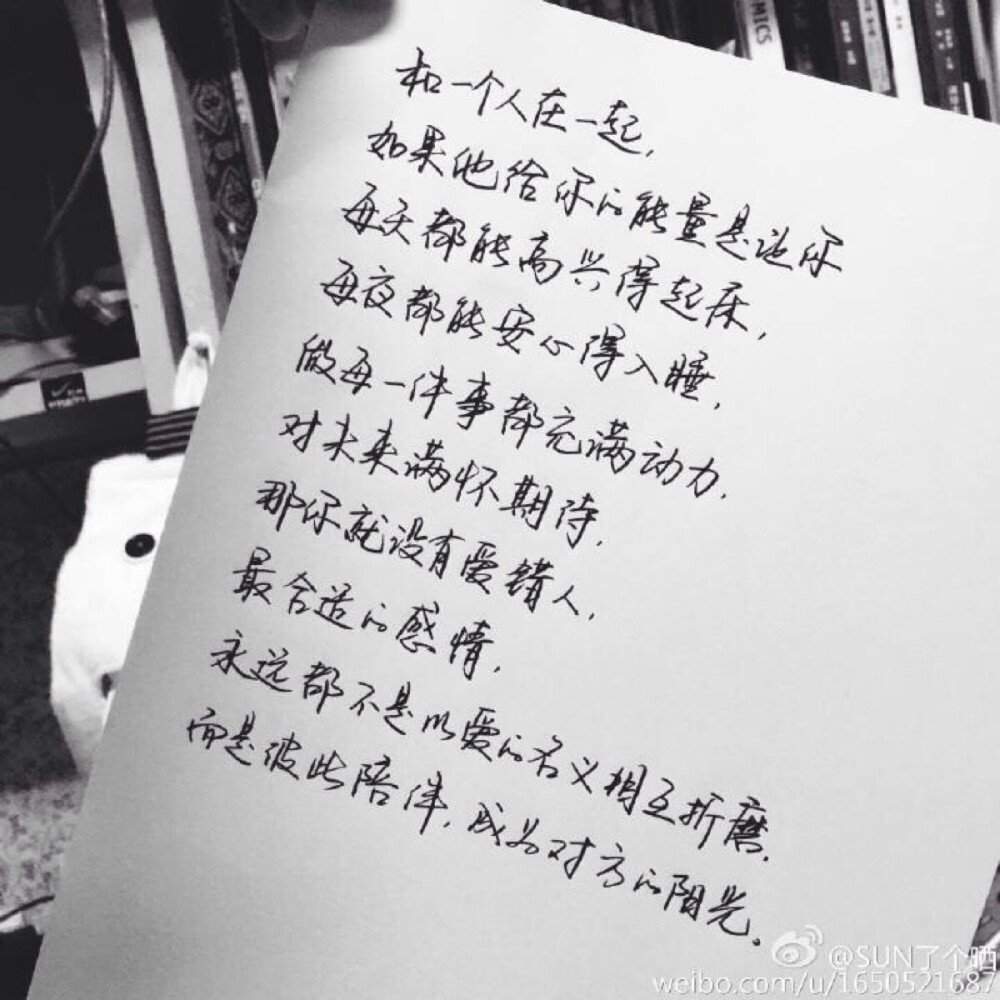 和一个人在一起,
如果他给你的能量是让你
每天都能高兴得起床,
每夜都能安心得入睡,
做每一件事都充满动力,
对未来满怀期待,
那你就没有爱错人,
最合适的感情,
永远都不是以爱的名义相互折磨,
而是彼此陪伴,成为对方的阳光。
MICS
@SUN了个晒
weibo.com/u/1650521687